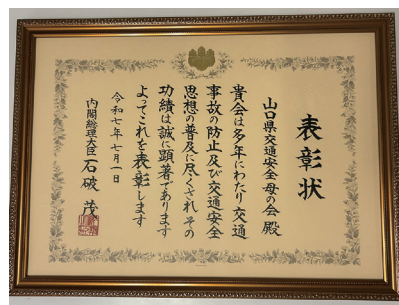 表彰状
山口県交通安全母の会 殿
貴会は多年にわたり交通
事故の防止及び交通安全
思想の普及に尽くされその
功績は誠に顕著であります
よってこれを表彰します
令和七年七月一日
内閣総理大臣 石破 茂